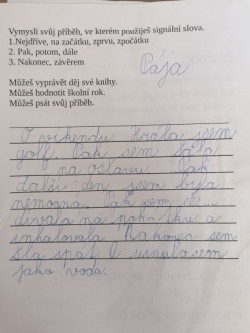 Vymysli svůj příběh, ve kterém použiješ signální slova.
1.Nejdříve, na začátku, zprvu, zpočátku
2. Pak, potom, dále
3. Nakonec, závěrem
Pája
Můžeš vyprávět děj své knihy.
Můžeš hodnotit školní rok.
Můžeš psát svůj příběh.
O víkendu hrála jsem
golf. Pak sem jela
na oslavu. Pak
další den jsem byla
nemocná. Pak jsem se
dívala na pohádku a
inhalovala. Nakonec sem
šla spát a usnula sem
jako voda.